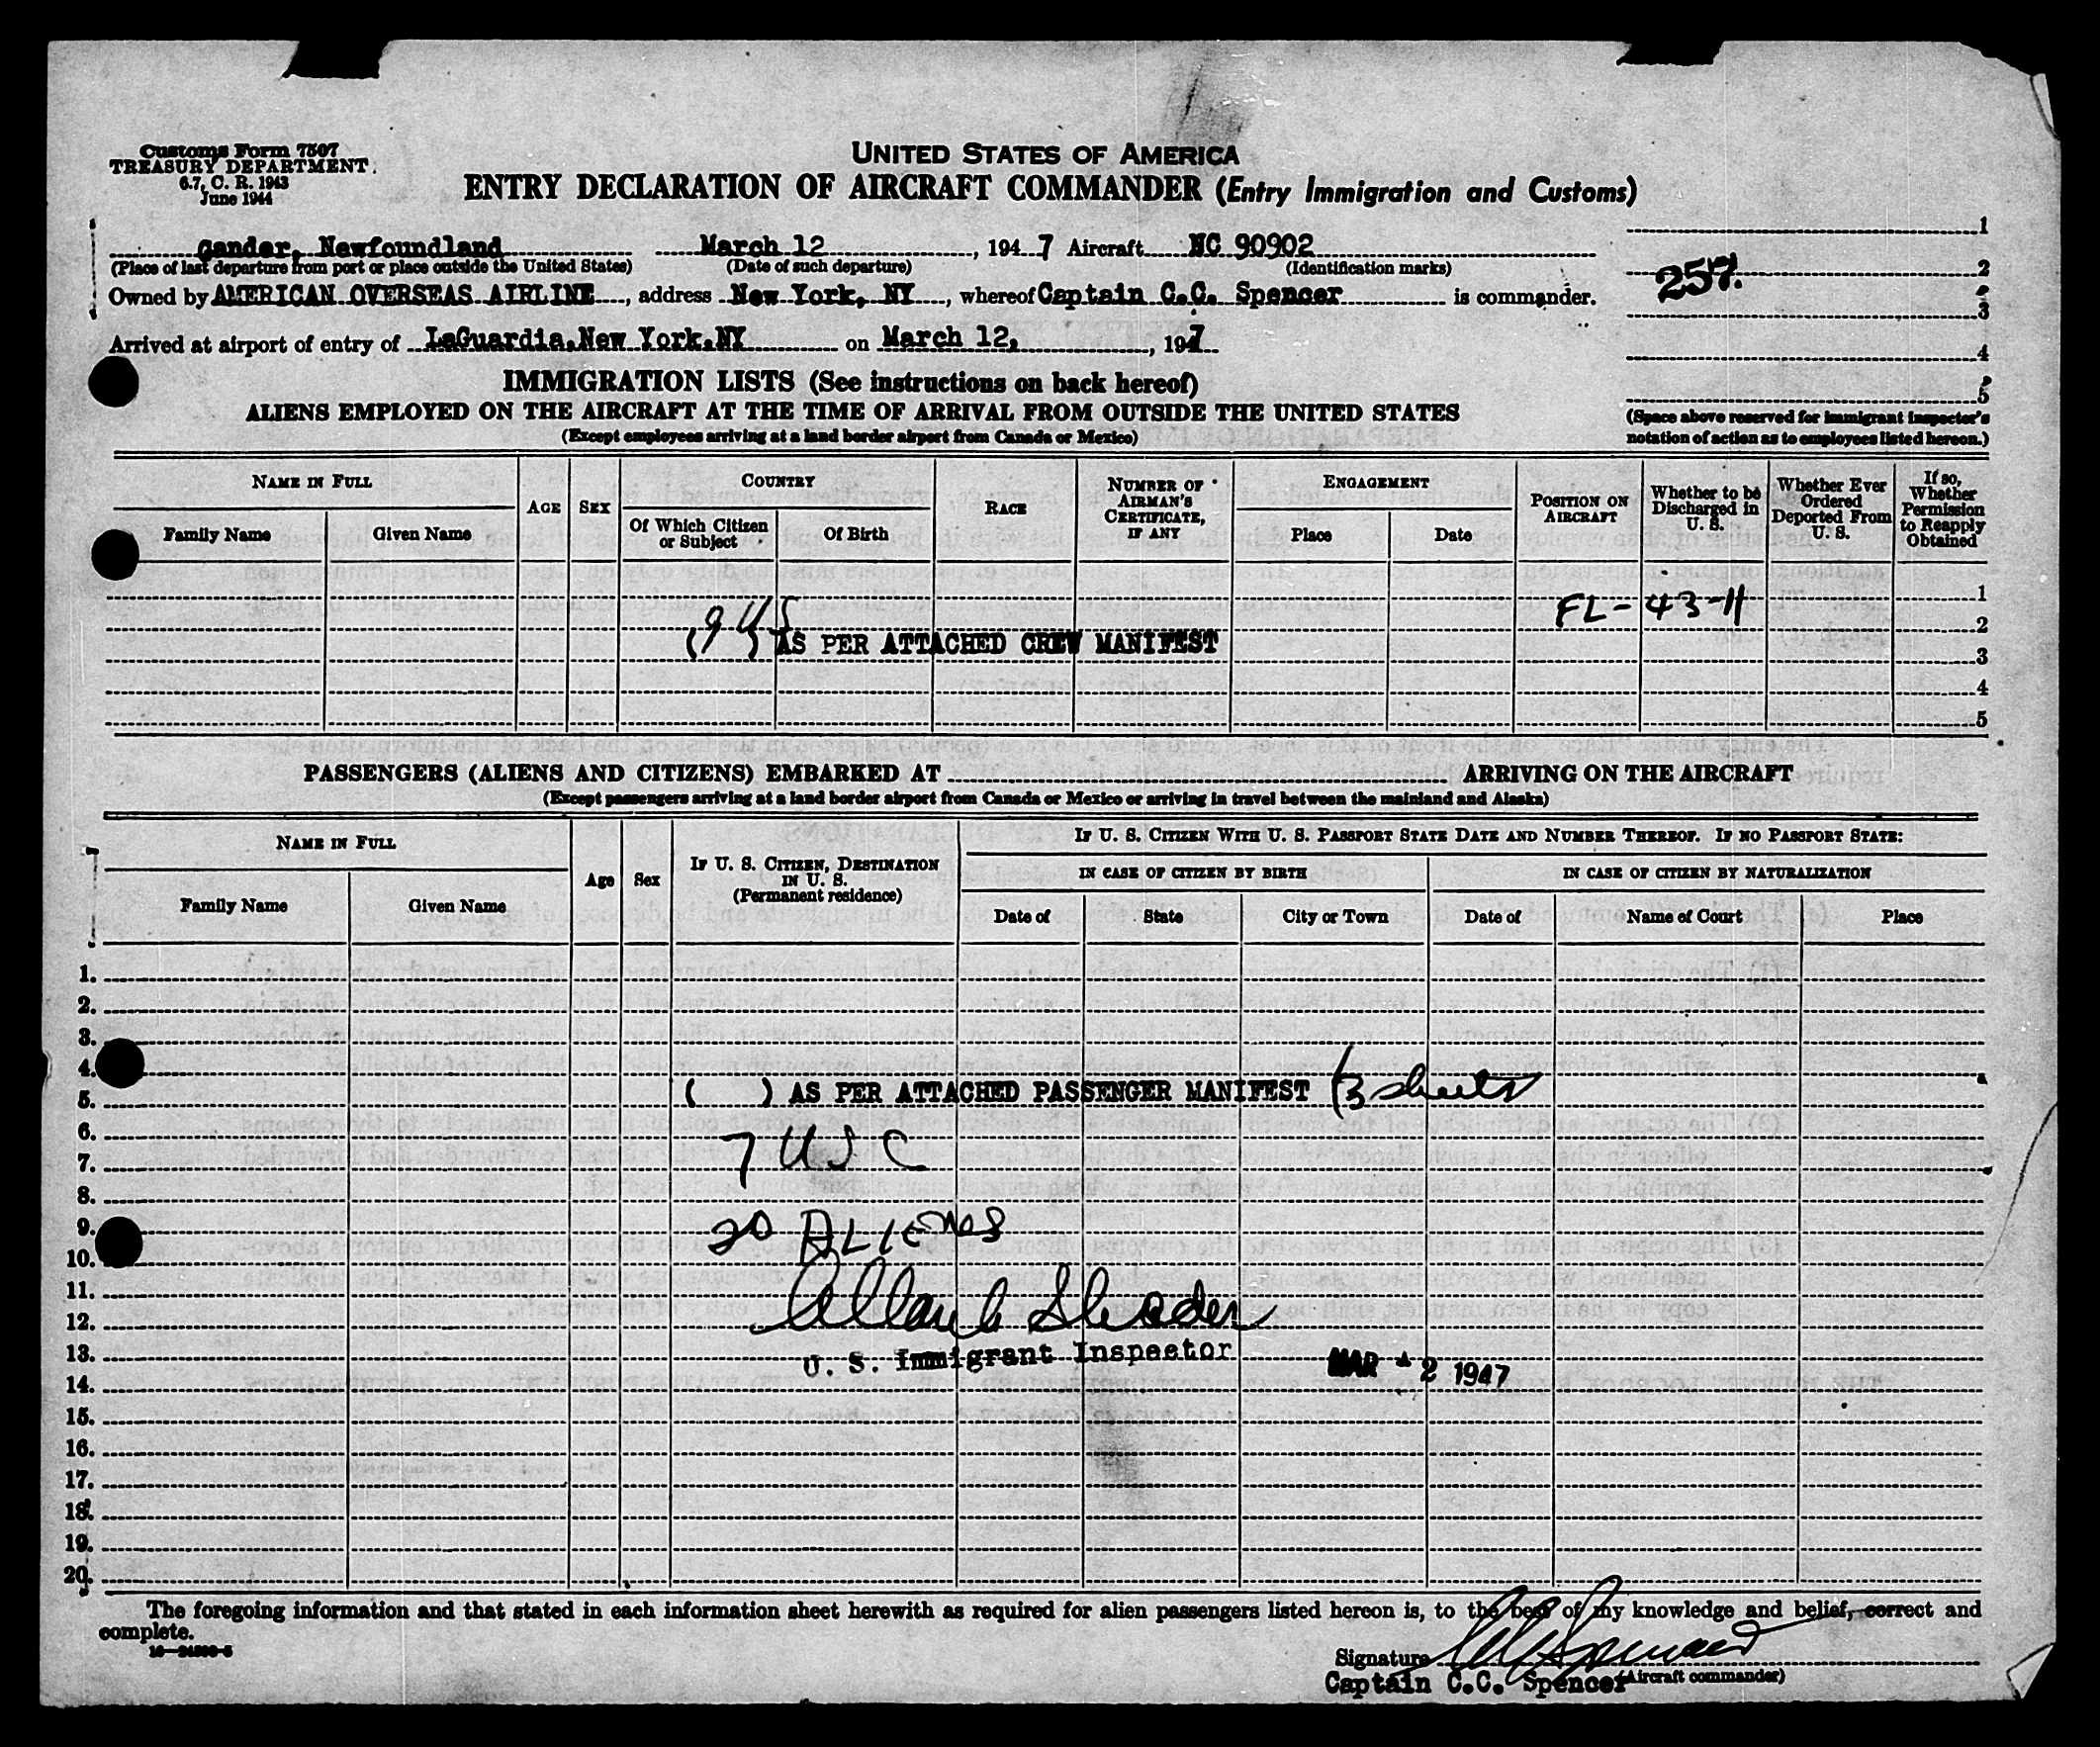 Customs Form 7507
TREASURY DEPARTMENT
6.7, C. R. 1943
June 1944
UNITED STATES OF AMERICA
ENTRY DECLARATION OF AIRCRAFT COMMANDER (Entry Immigration and Customs)
Gander, Newfoundland March 12, 1947 Aircraft NC 90902
(Place of last departure from port or place outside the United States) (Date of such departure) (Identification marks)
Owned by AMERICAN OVERSEAS AIRLINE, address New York, NY, whereof Captain C.C. Spencer is commander.
Arrived at airport of entry of LaGuardia, New York, NY on March 12, 1947
1
2
257.
3
4
5
(Space above reserved for immigrant inspector's
notation of action as to employees listed hereon.)
IMMIGRATION LISTS (See instructions on back hereof)
ALIENS EMPLOYED ON THE AIRCRAFT AT THE TIME OF ARRIVAL FROM OUTSIDE THE UNITED STATES
(Except employees arriving at a land border airport from Canada or Mexico)
NAME IN FULL
Family Name Given Name
AGE
SEX
COUNTRY
Of Which Citizen or Subject
Of Birth
RACE
NUMBER OF AIRMAN'S CERTIFICATE, IF ANY
ENGAGEMENT
Place Date
POSITION ON AIRCRAFT
Whether to be Discharged in U. S.
Whether Ever Ordered Deported From U. S.
If so, Whether Permission to Reapply Obtained
1
FL-43-H
2
(9 US) AS PER ATTACHED CREW MANIFEST
3
4
5
PASSENGERS (ALIENS AND CITIZENS) EMBARKED AT ARRIVING ON THE AIRCRAFT
(Except passengers arriving at a land border airport from Canada or Mexico or arriving in travel between the mainland and Alaska)
NAME IN FULL
Family Name Given Name
Age
Sex
IF U. S. CITIZEN, DESTINATION IN U. S.
(Permanent residence)
IF U. S. CITIZEN WITH U. S. PASSPORT STATE DATE AND NUMBER THEREOF. IF NO PASSPORT STATE:
IN CASE OF CITIZEN BY BIRTH
Date of State City or Town
IN CASE OF CITIZEN BY NATURALIZATION
Date of Name of Court Place
1.
2.
3.
4.
( ) AS PER ATTACHED PASSENGER MANIFEST (3 sheets
5.
6.
7 USC
7.
8.
9.
20 ALIENS
10.
11.
12.
13.
U. S. Immigrant Inspector
MAR 12 1947
14.
15.
16.
17.
18.
19.
20.
The foregoing information and that stated in each information sheet herewith as required for alien passengers listed hereon is, to the best of my knowledge and belief, correct and
complete.
Signature C C Spencer
Captain C.C. Spencer (Aircraft commander)